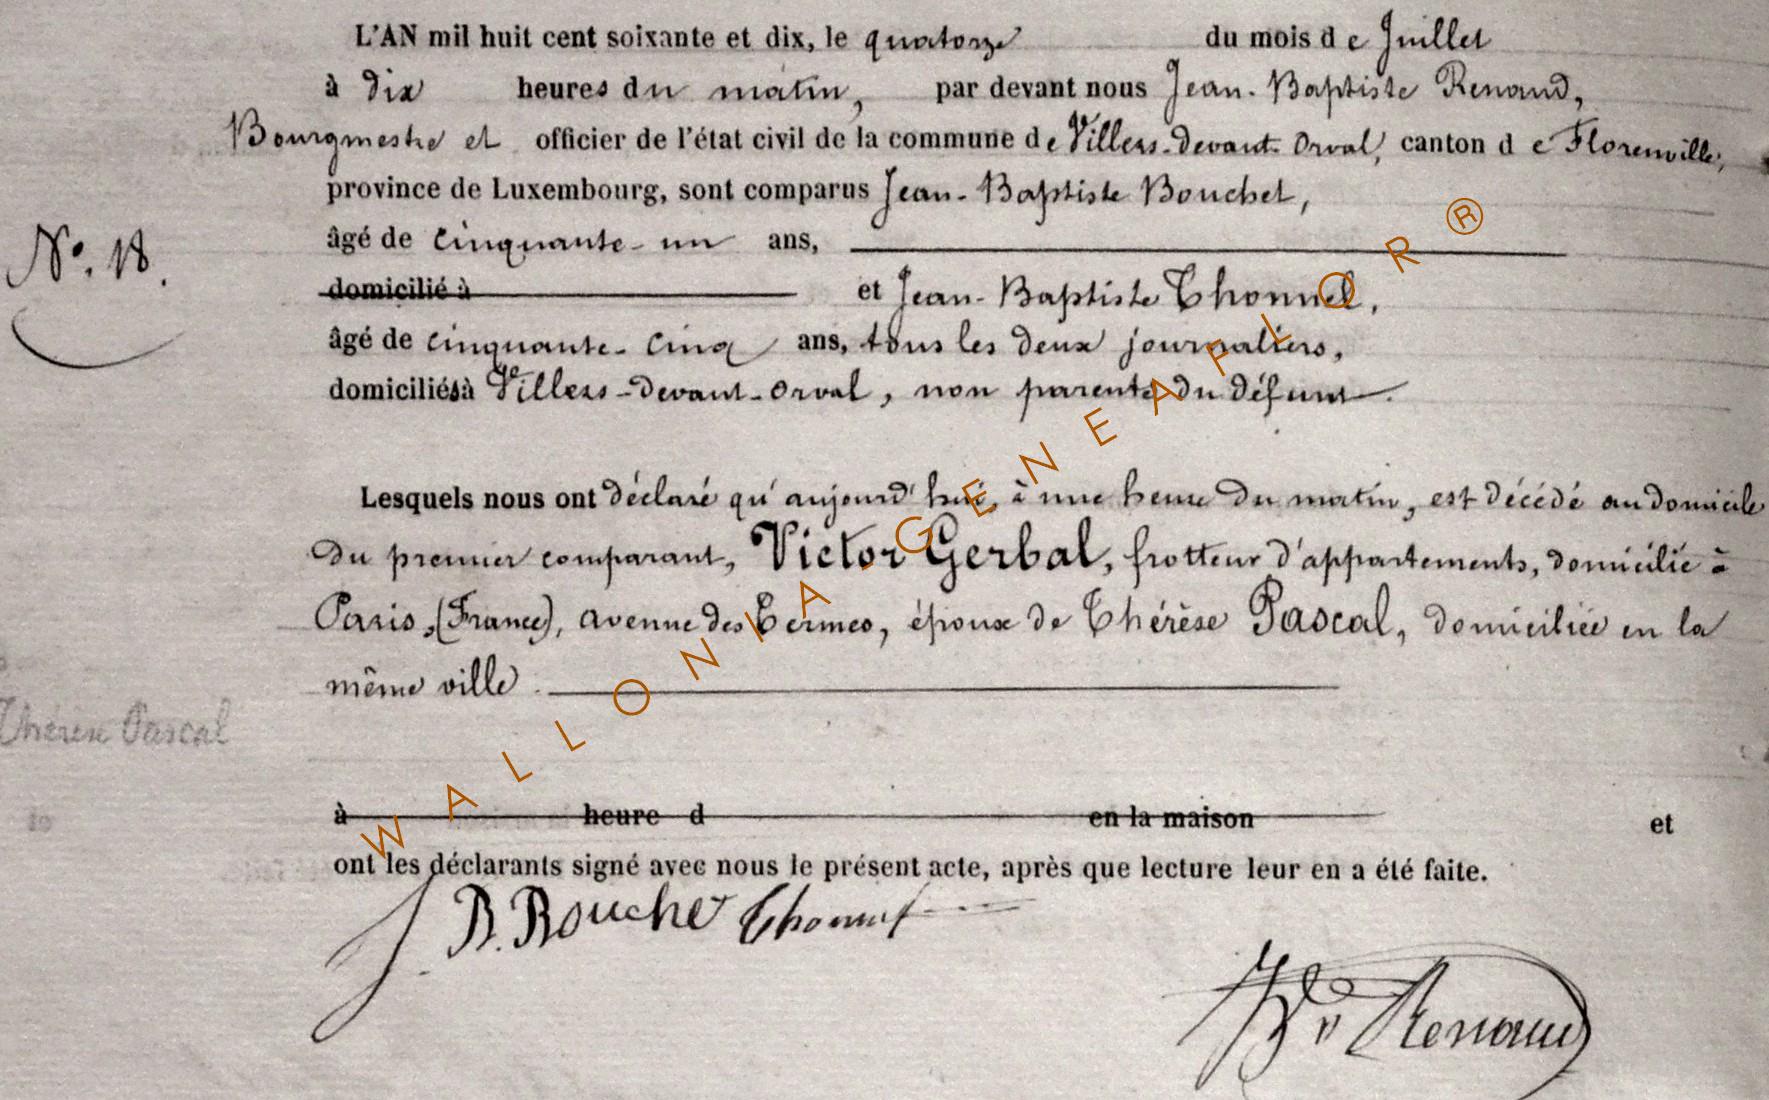 L'AN mil huit cent soixante et dix, le quatorze du mois de Juillet
à dix heures du matin, par devant nous Jean-Baptiste Renaud,
Bourgmestre et officier de l'état civil de la commune de Villers-devant-Orval, canton de Florenville,
province de Luxembourg, sont comparus Jean-Baptiste Bouchet,
N° 18.
âgé de cinquante-un ans,
domicilié à et Jean-Baptiste Thonnel,
âgé de cinquante-cinq ans, tous les deux journaliers,
domiciliés à Villers-devant-Orval, non parents du défunt.
Lesquels nous ont déclaré qu'aujourd'hui, à une heure du matin, est décédé au domicile
du premier comparant, Victor Gerbal, frotteur d'appartements, domicilié à
Paris, (France), avenue des Termes, époux de Thérèse Pascal, domiciliée en la
même ville.
Thérèse Pascal
à heure d en la maison et
ont les déclarants signé avec nous le présent acte, après que lecture leur en a été faite.
J. B. Bouchet Thonnel
Renaud
WALLONIA-GENEAFLOR®